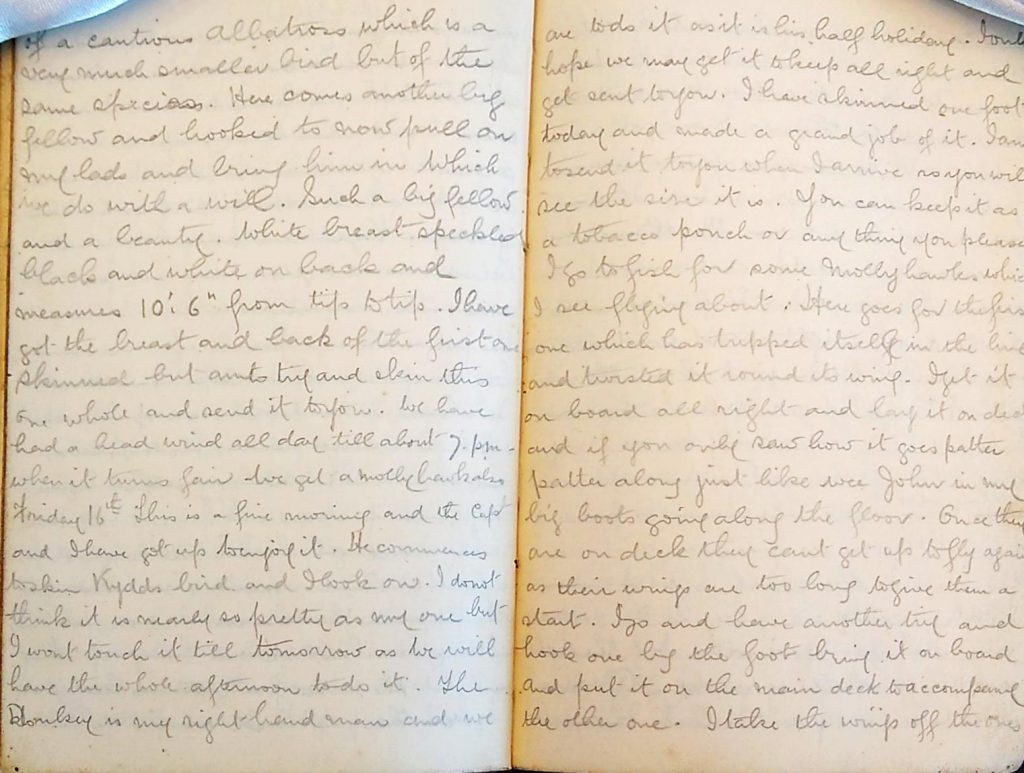 of a cantious Albatross which is a
very much smaller bird but of the
same species. Here comes another big
fellow and hooked to now pull on
my lads and bring him in which
we do with a will. Such a big fellow
and a beauty. White breast speckled
black and white on back and
measures 10' 6" from tip to tip. I have
got the breast and back of the first one
skinned but am to try and skin this
one whole and send it to you. We have
had a head wind all day till about 7. pm -
when it turns fair we get a molly hawk also
Friday 16th This is a fine morning and the Capt
and I have got up to enjoy it. He commences
to skin Kydds bird and I look on. I do not
think it is nearly so pretty as my one but
I wont touch it till tomorrow as we will
have the whole afternoon to do it. The
Donkey is my right hand man and we
are to do it as it is his half holiday. I only
hope we may get it to keep all right and
get sent to you. I have skinned one foot
today and made a grand job of it. I am
to send it to you when I arrive so you will
see the size it is. You can keep it as
a tobacco pouch or any thing you please
I go to fish for some Mollyhawks which
I see flying about. Here goes for the first
one which has tripped itself in the line
and twisted it round its wing. I get it
on board all right and lay it on deck
and if you only saw how it goes patter
patter along just like wee John in my
big boots going along the floor. Once they
are on deck they cant get up to fly again
as their wings are too long to give them a
start. I go and have another try and
hook one by the foot bring it on board
and put it on the main deck to accompany
the other one. I take the wings off the ones